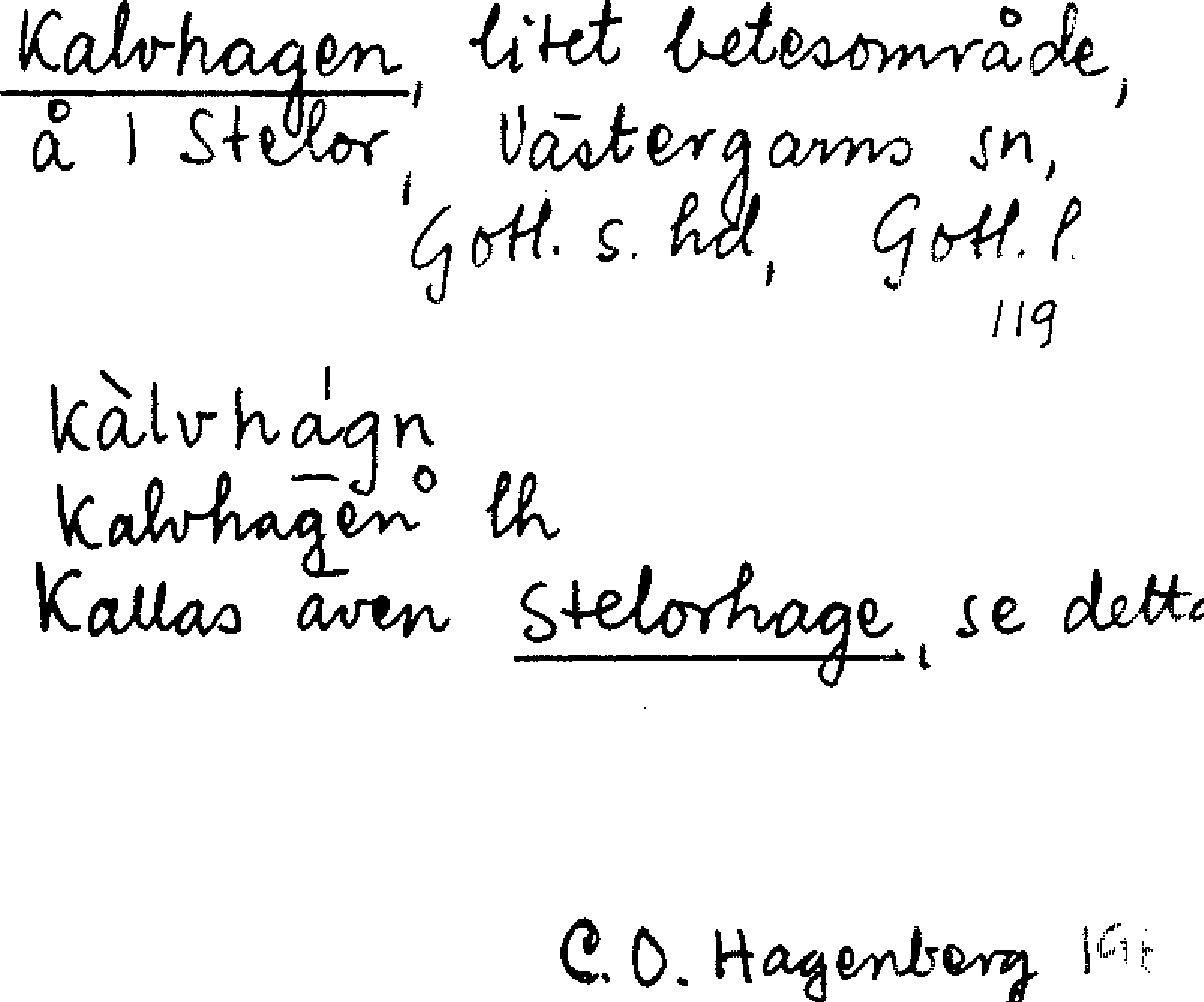 Kalvhagen, litet betesområde,
å 1 Stelor, Västergarns sn,
Gotl. s. hd, Gotl. l.
119
kàlvhágn
Kalvhagen° lh
Kallas även Stelorhage, se detta
C. O. Hagenberg